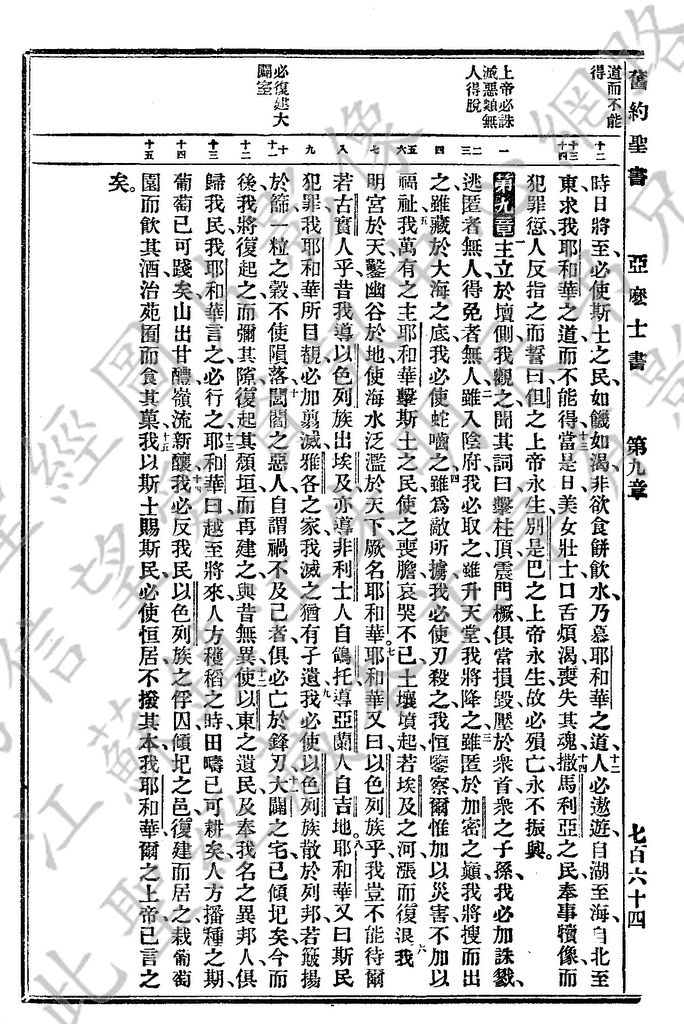 舊約聖書 亞麼士書 第九章 七百六十四
道而不能
得
上帝必誅
滅惡類無
人得脫
必復建大
闢室
十二
十三
十四
一
二
三
四
五
六
七
八
九
十
十一
十二
十三
十四
十五
時日將至、必使斯土之民如饑如渴、非欲食餅飲水、乃慕耶和華之道、人必遨遊、自湖至海、自北至
東、求我耶和華之道、而不能得、當是日美女壯士、口舌煩渴、喪失其魂、撒馬利亞之民、奉事犢像、而
犯罪愆、人反指之而誓曰、但之上帝永生、別是巴之上帝永生、故必殞亡、永不振興。
第九章 主立於壇側、我觀之、聞其詞曰、擊柱頂、震門橛、俱當損毀、壓於衆首、衆之子孫、我必加誅戮、
逃匿者無人得免者無人、雖入陰府、我必取之、雖升天堂、我將降之、雖匿於加密之巔、我將搜而出
之、雖藏於大海之底、我必使蛇嚙之、雖爲敵所擄、我必使刃殺之、我恒鑒察爾、惟加以災害、不加以
福祉、我萬有之主耶和華、擊斯土之民、使之喪膽、哀哭不已、土壤墳起、若埃及之河、漲而復退、我
明宮於天、鑿幽谷於地、使海水泛濫於天下、厥名耶和華、耶和華又曰、以色列族乎、我豈不能待爾
若古實人乎、昔我導以色列族出埃及、亦導非利士人自鴿托、導亞蘭人自吉地、耶和華又曰、斯民
犯罪、我耶和華所目覩、必加翦滅、雅各之家、我滅之、猶有孑遺、我必使以色列族散於列邦、若簸揚
於篩、一粒之穀、不使隕落、閭閻之惡人、自謂禍不及己者、俱必亡於鋒刃、大闢之宅已傾圮矣、今而
後我將復起之、而彌其隙、復起其頹垣、而再建之、與昔無異、使以東之遺民、及奉我名之異邦人、俱
歸我民、我耶和華言之、必行之、耶和華曰、越至將來、人方穫稻之時、田疇已可耕矣、人方播種之期、
葡萄已可踐矣、山出甘醴、嶺流新釀、我必反我民以色列族之俘囚、傾圮之邑、復建而居之、栽葡萄
園而飲其酒、治苑囿而食其菓、我以斯土賜斯民、必使恒居、不撥其本、我耶和華爾之上帝已言之
矣。